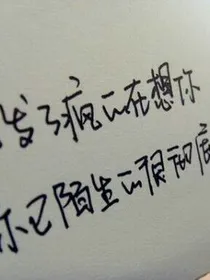 发了疯一在想你
你已陌生一很彻底